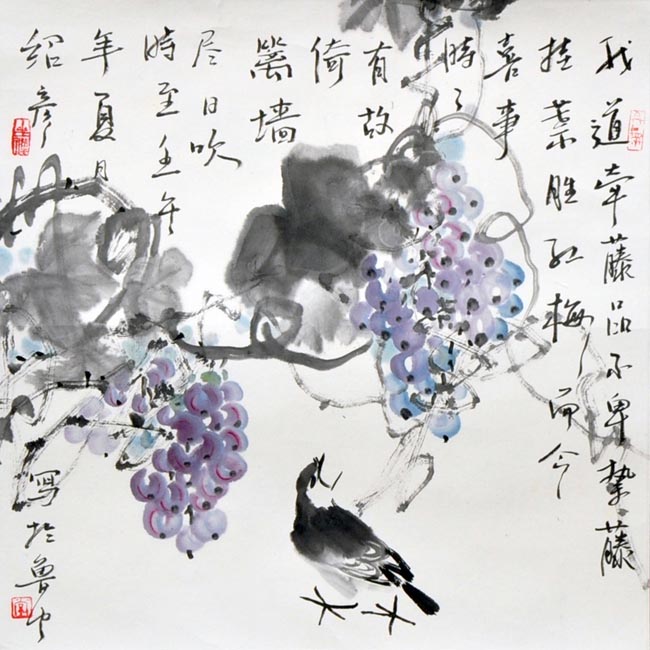 我道牵藤品不卑蛰藤
挂叶胜红梅而今
喜事
时时
有故
倚
篱墙
尽日吹
時至壬午
年夏月
绍彦
寫於魯中